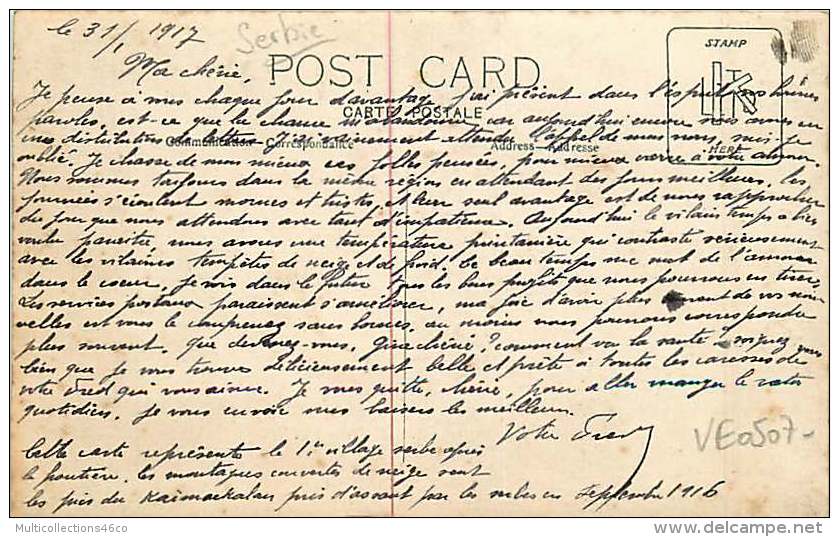 le 31/1 1917
Serbie
Ma chérie,
POST CARD
CARTE POSTALE
STAMP
HERE
Communication - Correspondance
Address - Adresse
Je pense à vous chaque jour davantage, j'ai présent dans l'esprit vos bonnes
paroles, est-ce que la chance m'abandonne, car aujourd'hui encore nous avons eu
une distribution de lettres. J'ai vainement attendu l'appel de mon nom, suis-je
oublié. Je chasse de mon mieux ces folles pensées, pour mieux croire à votre amour.
Nous sommes toujours dans la même région en attendant des jours meilleurs. les
journées s'écoulent mornes et tristes, et leur seul avantage est de nous rapprocher
du jour que nous attendons avec tant d'impatience. Aujourd'hui le vilain temps a bien
voulu paraître, nous avons une température printanière qui contraste sérieusement
avec les vilaines tempêtes de neige et de froid. Ce beau temps me met de l'amour
dans le coeur, je vois dans le futur tous les bons profits que nous pourrons en tirer.
Les services postaux paraissent s'améliorer, ma joie d'avoir plus souvent de vos nou-
velles est vous le comprenez sans bornes, au moins nous pourrons correspondre
plus souvent. Que devenez-vous, Gine chérie? comment va la santé - soignez vous
bien que je vous trouve délicieusement belle et prête à toutes les caresses de
votre Fred qui vous aime. Je vous quitte, chérie, pour aller manger le rata
quotidien. Je vous envoie mes baisers les meilleurs.
Votre Fred
VE0507-
Cette carte représente le 1er village serbe après
la frontière. les montagnes couvertes de neige sont
les pics du Kaimackalan pris d'assaut par les serbes en Septembre 1916
Multicollections46co